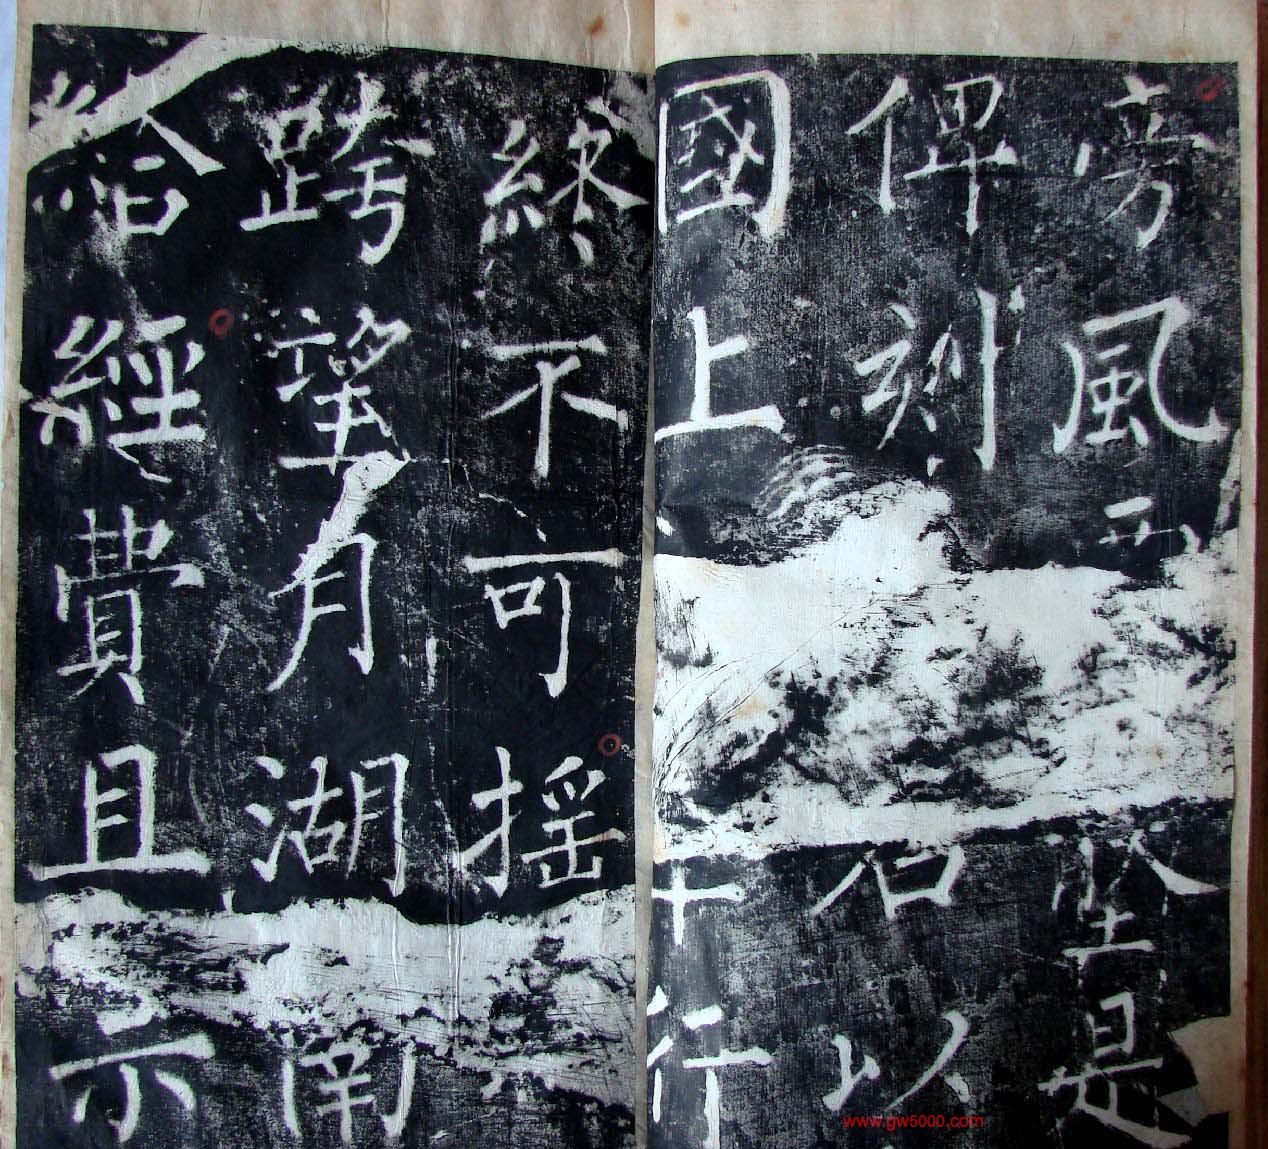 旁風
坐是
俾刻
石以
國上
十行
終不可揺
跨望月湖
南
給經費且
示
www.gw5000.com